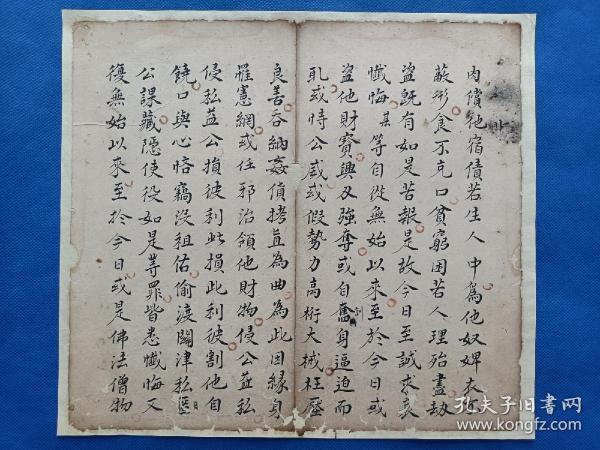 肉償他宿債若生人中為他奴婢衣不
蔽形食不充口貧窮困苦人理殆盡劫
盜既有如是苦報是故今日至誠求哀
懺悔某等自從無始以來至於今日或
盜他財寶興刃強奪或自奮身逼迫而
取或恃公威或假勢力高桁大械枉壓
良善吞納姦貨拷直為曲為此因緣身
罹憲網或任邪治領他財物侵公益私
侵私益公損彼利此損此利彼割他自
饒口與心悋竊沒租估偷渡關津私匿
公課藏隱使役如是等罪皆悉懺悔又
復無始以來至於今日或是佛法僧物
孔夫子旧书网
www.kongfz.com